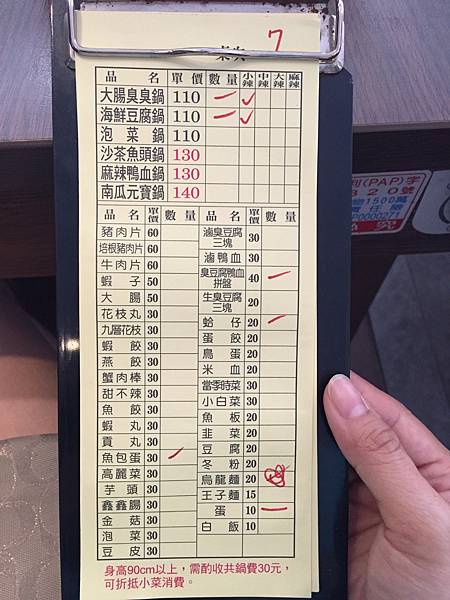 7
品 名 單價 數量 小辣 中辣 大辣 麻辣
大腸臭臭鍋 110 一 ✓
海鮮豆腐鍋 110 一 ✓
泡菜鍋 110
沙茶魚頭鍋 130
麻辣鴨血鍋 130
南瓜元寶鍋 140
品 名 單價 數量
豬肉片 60
培根豬肉片 60
牛肉片 60
蝦子 50
大腸 50
花枝丸 30
九層花枝 30
蝦餃 30
燕餃 30
蟹肉棒 30
甜不辣 30
魚餃 30
蝦丸 30
貢丸 30
魚包蛋 30 一
高麗菜 30
芋頭 30
鑫鑫腸 30
金菇 30
泡菜 30
豆皮 30
品 名 單價 數量
滷臭豆腐三塊 30
滷鴨血 30
臭豆腐鴨血拼盤 40 一
生臭豆腐三塊 20
蛤仔 20 一
蛋餃 20
鳥蛋 20
米血 20
當季時菜 30
小白菜 30
魚板 20
韭菜 20
豆腐 20
冬粉 20
烏龍麵 20
王子麵 15
蛋 10 一
白飯 10
身高90cm以上，需酌收共鍋費30元，
可折抵小菜消費。
(PAP)字
320號
1500萬
責任險
P0000271